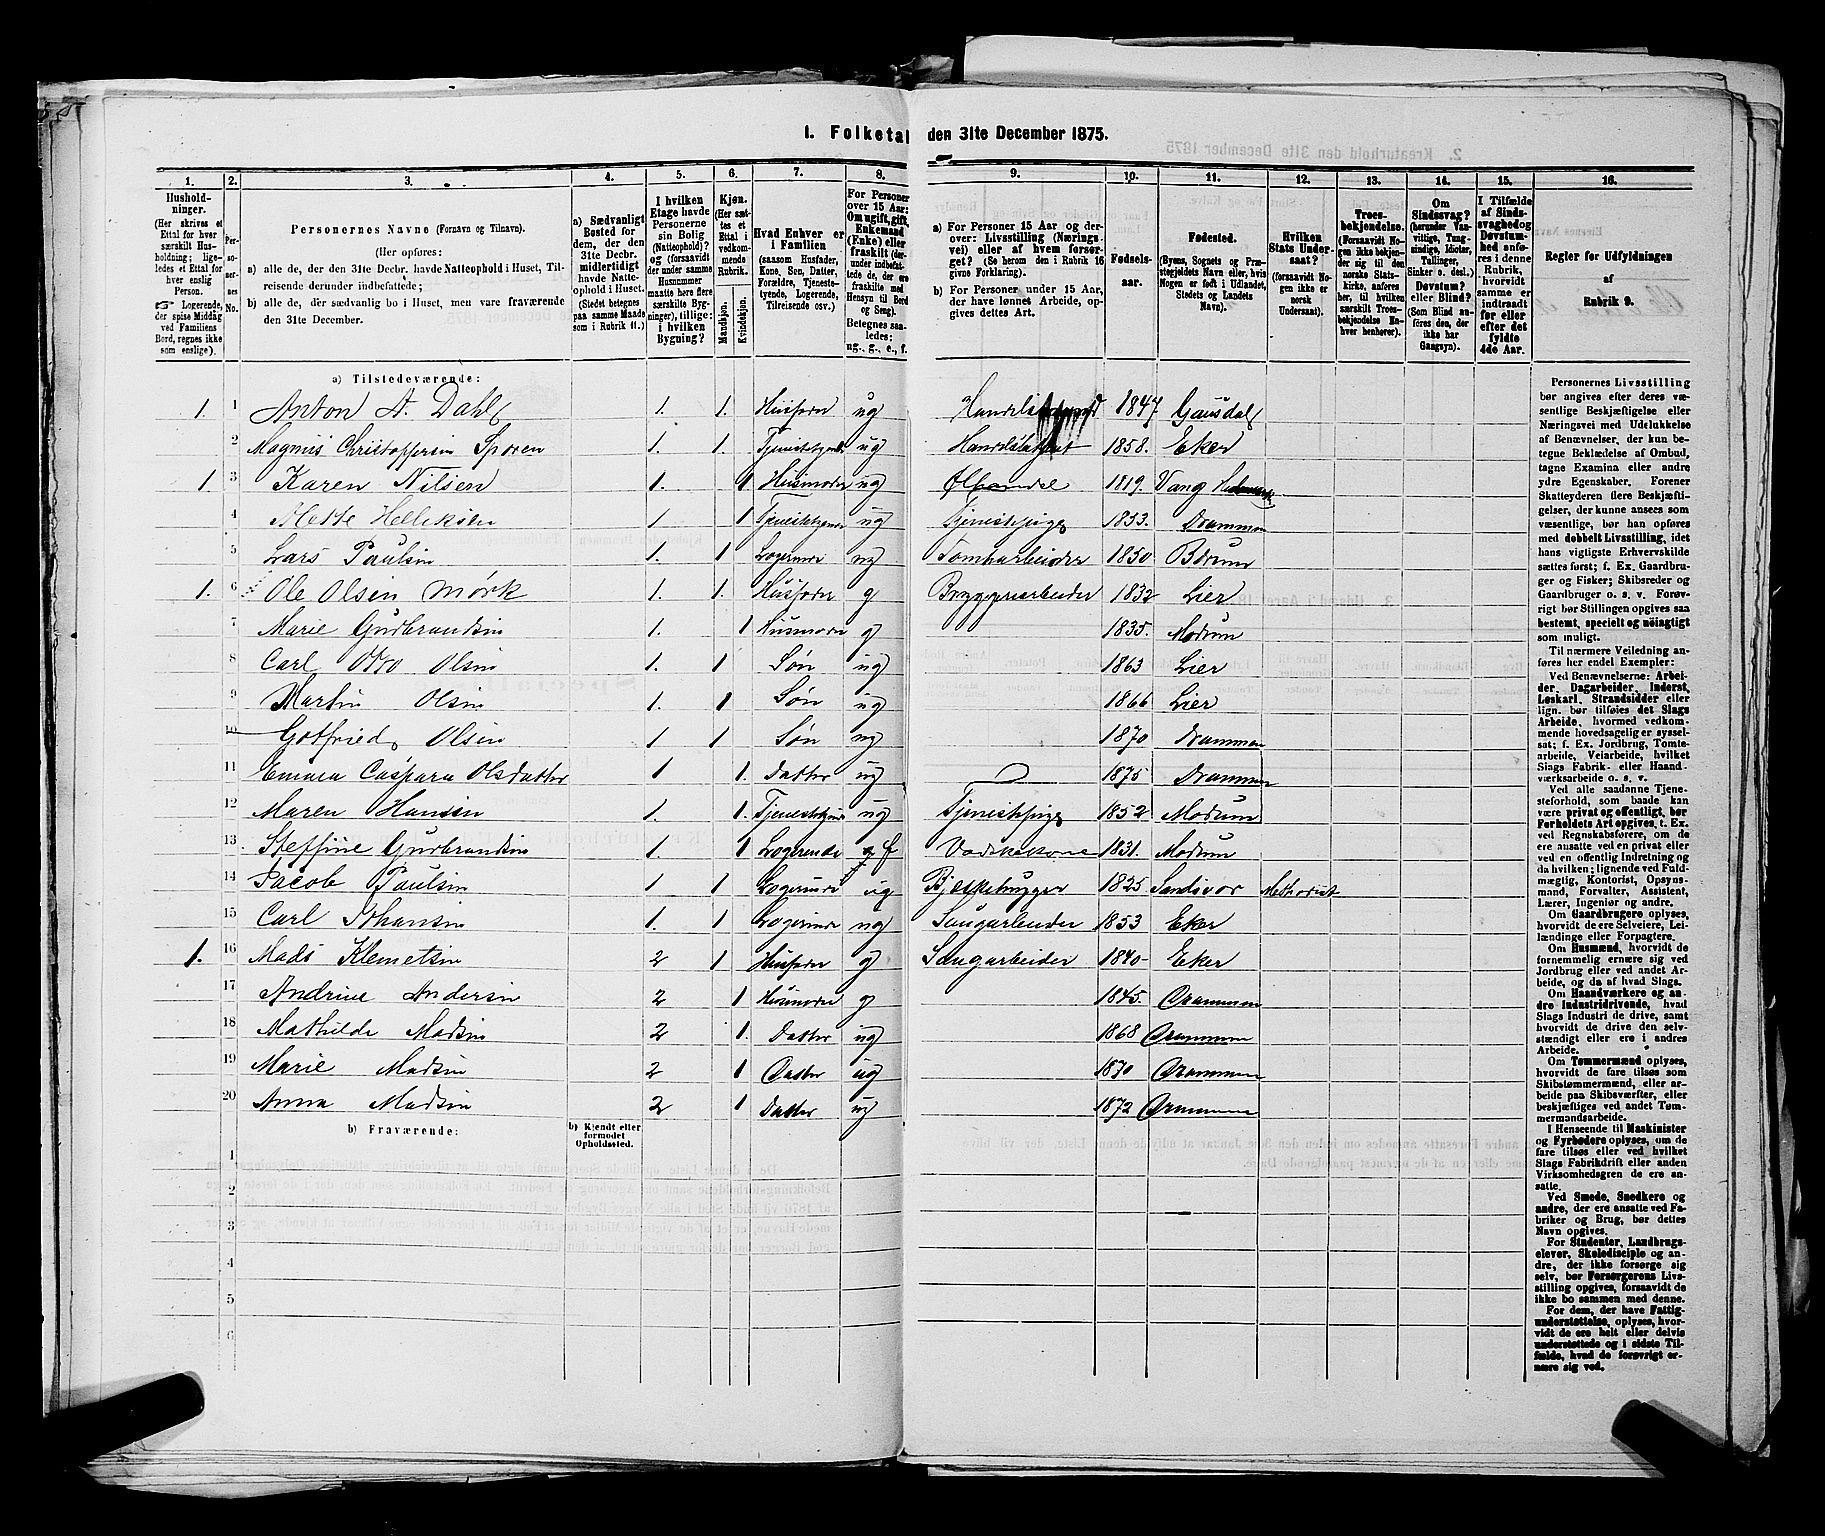 1. Folketal den 31te December 1875.
1. 2. 3. 4. 5. 6. 7. 8. 9. 10. 11. 12. 13. 14. 15. 16.
Husholdninger.
(Her skrives et
Ettal for hver
særskilt Husholdning;
ligeledes et Ettal for
hver enslig
Person.
☞ Logerende,
der spise Middag
ved Familiens
Bord, regnes ikke
som enslige).
Personernes No.
Personernes Navne (Fornavn og Tilnavn).
(Her opføres:
a) alle de, der den 31te Decbr. havde Natteophold i Huset, Tilreisende derunder indbefattede;
b) alle de, der sædvanlig bo i Huset, men vare fraværende
den 31te December.
a) Sædvanligt
Bosted for
dem, der den
31te Decbr.
midlertidigt
havde Natteophold
i Huset.
(Stedet betegnes
paa samme Maade
som i Rubrik 11.)
I hvilken
Etage havde
Personerne
sin Bolig
(Natteophold)?
og (forsaavidt
der under samme
Husnummer
maatte høre flere
særskilte Bygninger),
tillige:
i hvilken
Bygning?
Kjøn.
(Her sættes
et
Ettal i
vedkommende
Rubrik.
Mandkjøn.
Kvindekjøn.
Hvad Enhver er
i Familien
(saasom Husfader,
Kone, Søn, Datter,
Forældre, Tjenestetyende,
Logerende,
Tilreisende osv.)
For Personer
over 15 Aar:
Om ugift, gift,
Enkemand
(Enke) eller
fraskilt
Hensyn til Bord
og Seng).
Betegnes saaledes:
ug., g., e., f.
a) For Personer 15 Aar og derover: Livsstilling (Næringsvei) eller af hvem forsørget? (Se herom den i Rubrik 16
givne Forklaring).
b) For Personer under 15 Aar,
der have lønnet Arbeide, opgives dettes Art.
Fødselsaar.
Fødested.
(Byens, Sognets og Præstegjeldets Navn eller, hvis
Nogen er født i Udlandet,
Stedets og Landets
Navn).
Hvilken
Stats Undersaat?
(forsaavidt Nogen ikke er
norsk
Undersaat).
Troesbekjendelse.
(Forsaavidt Nogen ikke bekjender sig til den
norske Statskirke, anføres
her, til hvilken
særskilt Troesbekjendelse Enhver henhører).
Om
Sindssvag?
(herunder Vanvittige, Tungsindige, Idioter,
Tullinger,
Sinker o. desl.)
Døvstum?
eller Blind?
(Som Blind anføres den, der
ikke har
Gangsyn).
I Tilfælde
af Sindssvaghed og
Døvstumhed anføres i denne
Rubrik,
hvorvidt
samme er
indtraadt
før eller
efter det
fyldte
4de Aar.
Regler for Udfyldningen
af
Rubrik 9.
a) Tilstedeværende:
1. 1 Anton A. Dahl 1. 1. Husfader ug 1847. Gausdal
2 Magnus Christoffersen Sporen 1. 1. Tjenestetyende ug Handelsbetjent 1858. Eker
1. 3 Karen Nilsen 1. 1 Husmoder ug Ølhandel 1819. Vang Hedemark
4 Mette Helleksen 1 1 Tjenestetyende ug Tjenestepige 1833. Drammen
5 Lars Paulsen 1. 1 Logerende ug Tomtearbeider 1850 Bærum
1. 6 Ole Olsen Mørk 1. 1. Husfader g Bryggeriarbeider 1832 Lier
7 Marie Gudbrandsen 1. 1 Husmoder g 1835. Modum
8 Carl Otto Olsen 1. 1 Søn ug 1863 Lier
9 Martin Olsen 1. 1 Søn ug 1866 Lier
10 Gotfried Olsen 1 1 Søn ug 1870 Drammen
11 Emma Caspara Olsdatter 1 1. Datter ug 1875 Drammen
12 Maren Hansen 1. 1. Tjenestetyende ug Tjenestepige 1852 Modum
13 Steffine Gudbrandsen 1. 1 Logerende f Vadskekone 1831. Modum
14 Jacob Paulsen 1 1 Logerende ug 1825 Methodist
15 Carl Johansen 1. 1 Logerende ug Saugarbeider 1853 Eker
1. 16 Mads Klemetsen 2 1 Husfader g Saugarbeider 1840 Eker
17 Andrine Andersen 2 1 Husmoder g 1845. Drammen
18 Mathilde Madsen 2 1. Datter ug 1868 Drammen
19 Marie Madsen 2 1 Datter ug 1870 Drammen
20 Anna Madsen 2 1 Datter ug 1872 Drammen
b) Fraværende: b) Kjendt eller
formodet
Opholdssted.
1
2
3
4
5
6
Personernes Livsstilling
bør angives efter deres væsentlige Beskjæftigelse eller
Næringsvei med Udelukkelse
af Benævnelser, der kun betegne Beklædelse af Ombud,
tagne Examina eller andre
ydre Egenskaber. Forener
Skatteyderen flere Beskjæftigelser, der kunne ansees som
væsentlige, bør han opføres
med dobbelt Livsstilling, idet
hans vigtigste Erhvervskilde
sættes først; f. Ex. Gaardbruger og Fisker; Skibsreder og
Gaardbruger o. s. v. Forøvrigt bør Stillingen opgives saa
bestemt, specielt og nøiagtigt
som muligt.
Til nærmere Veiledning anføres her endel Exempler:
Ved Benævnelserne: Arbeider, Dagarbeider, Inderst,
Løskarl, Strandsidder eller
lign. bør tilføies det Slags
Arbeide, hvormed vedkommende hovedsagelig er sysselsat; f. Ex. Jordbrug, Tomtearbeide, Veiarbeide, hvilket
Slags Fabrik- eller Haandværksarbeide o. s. v.
Ved alle saadanne Tjenesteforhold, som baade kan
være privat og offentligt, bør
Forholdets Art opgives, t. Ex.
ved Regnskabsførere, om de
ere ansatte ved en privat eller
ved en offentlig Indretning og
da hvilken; lignende ved Fuldmægtig, Kontorist, Opsynsmand, Forvalter, Assistent,
Lærer, Ingeniør og andre.
Om Gaardbrugere oplyses,
hvorvidt de ere Selveiere, Leilændinge eller Forpagtere.
Om Husmænd, hvorvidt de
fornemmelig ernære sig ved
Jordbrug eller ved andet Arbeide, og da af hvad Slags.
Om Haandværkere og andre Industridrivende, hvad
Slags Industri de drive, samt
hvorvidt de drive den selvstændigt eller ere i andres
Arbeide.
Om Tømmermænd oplyses,
hvorvidt de fare tilsøs som
Skibstømmermænd, eller arbeide paa Skibsværfter, eller
beskjæftiges ved andet Tømmermandsarbeide.
I Henseende til Maskinister
og Fyrbødere oplyses, om de
fare tilsøs eller ved hvilket
Slags Fabrikdrift eller anden
Virksomhedsgren de ere ansatte.
Ved Smede, Snedkere og
andre, der ere ansatte ved Fabriker og Brug, bør dettes
Navn opgives.
For Studenter, Landbrugselever, Skoledisciple og andre, der ikke forsørge sig
selv, bør Forsørgerens Livsstilling opgives, forsaavidt de
ikke bo sammen med denne.
For dem, der have Fattigunderstøttelse, oplyses, hvorvidt de ere helt eller delvis
understøttede og i sidste Tilfælde, hvad de forøvrigt ernære sig ved.